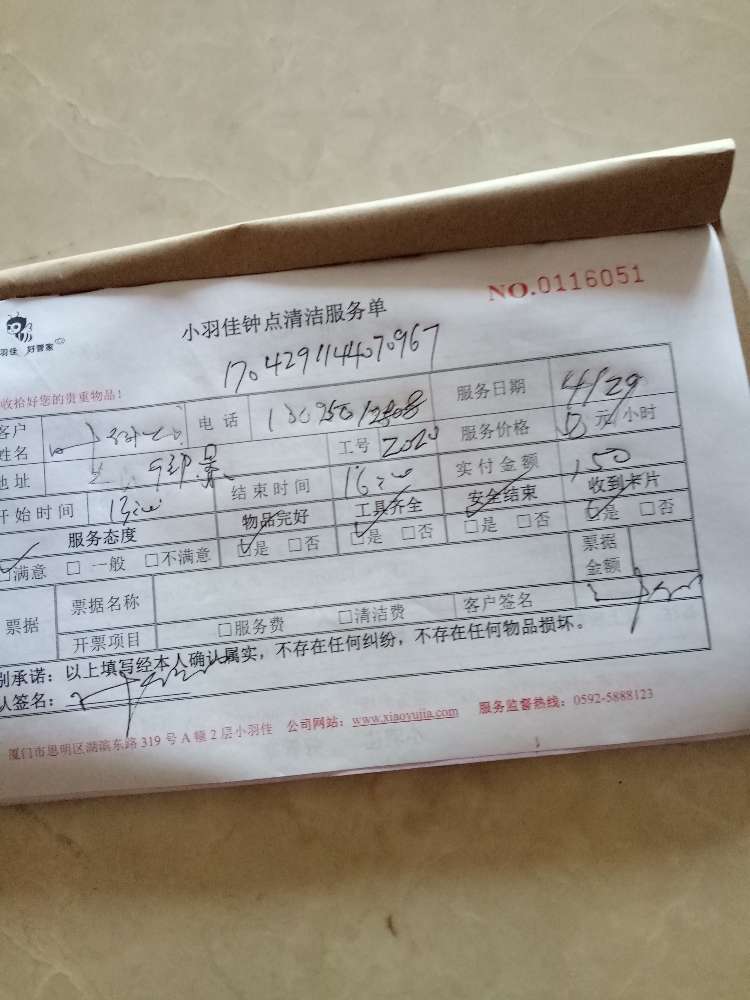 NO.0116051
小羽佳钟点清洁服务单
羽佳 好管家
1704291144070967
收拾好您的贵重物品!
客户姓名 电话 服务日期 4/29
地址 工号 2020 服务价格 50 元/小时
开始时间 13:00 结束时间 16:00 实付金额 150
服务态度 物品完好 工具齐全 安全结束 收到卡片
☑满意 □ 一般 □不满意 ☑是 □否 ☑是 □否 ☑是 □否 ☑是 □否
票据 票据名称 票据金额
开票项目 □服务费 □清洁费 客户签名
别承诺:以上填写经本人确认属实,不存在任何纠纷,不存在任何物品损坏。
认签名:
厦门市思明区湖滨东路 319 号 A 幢 2 层小羽佳 公司网站:www.xiaoyujia.com 服务监督热线:0592-5888123